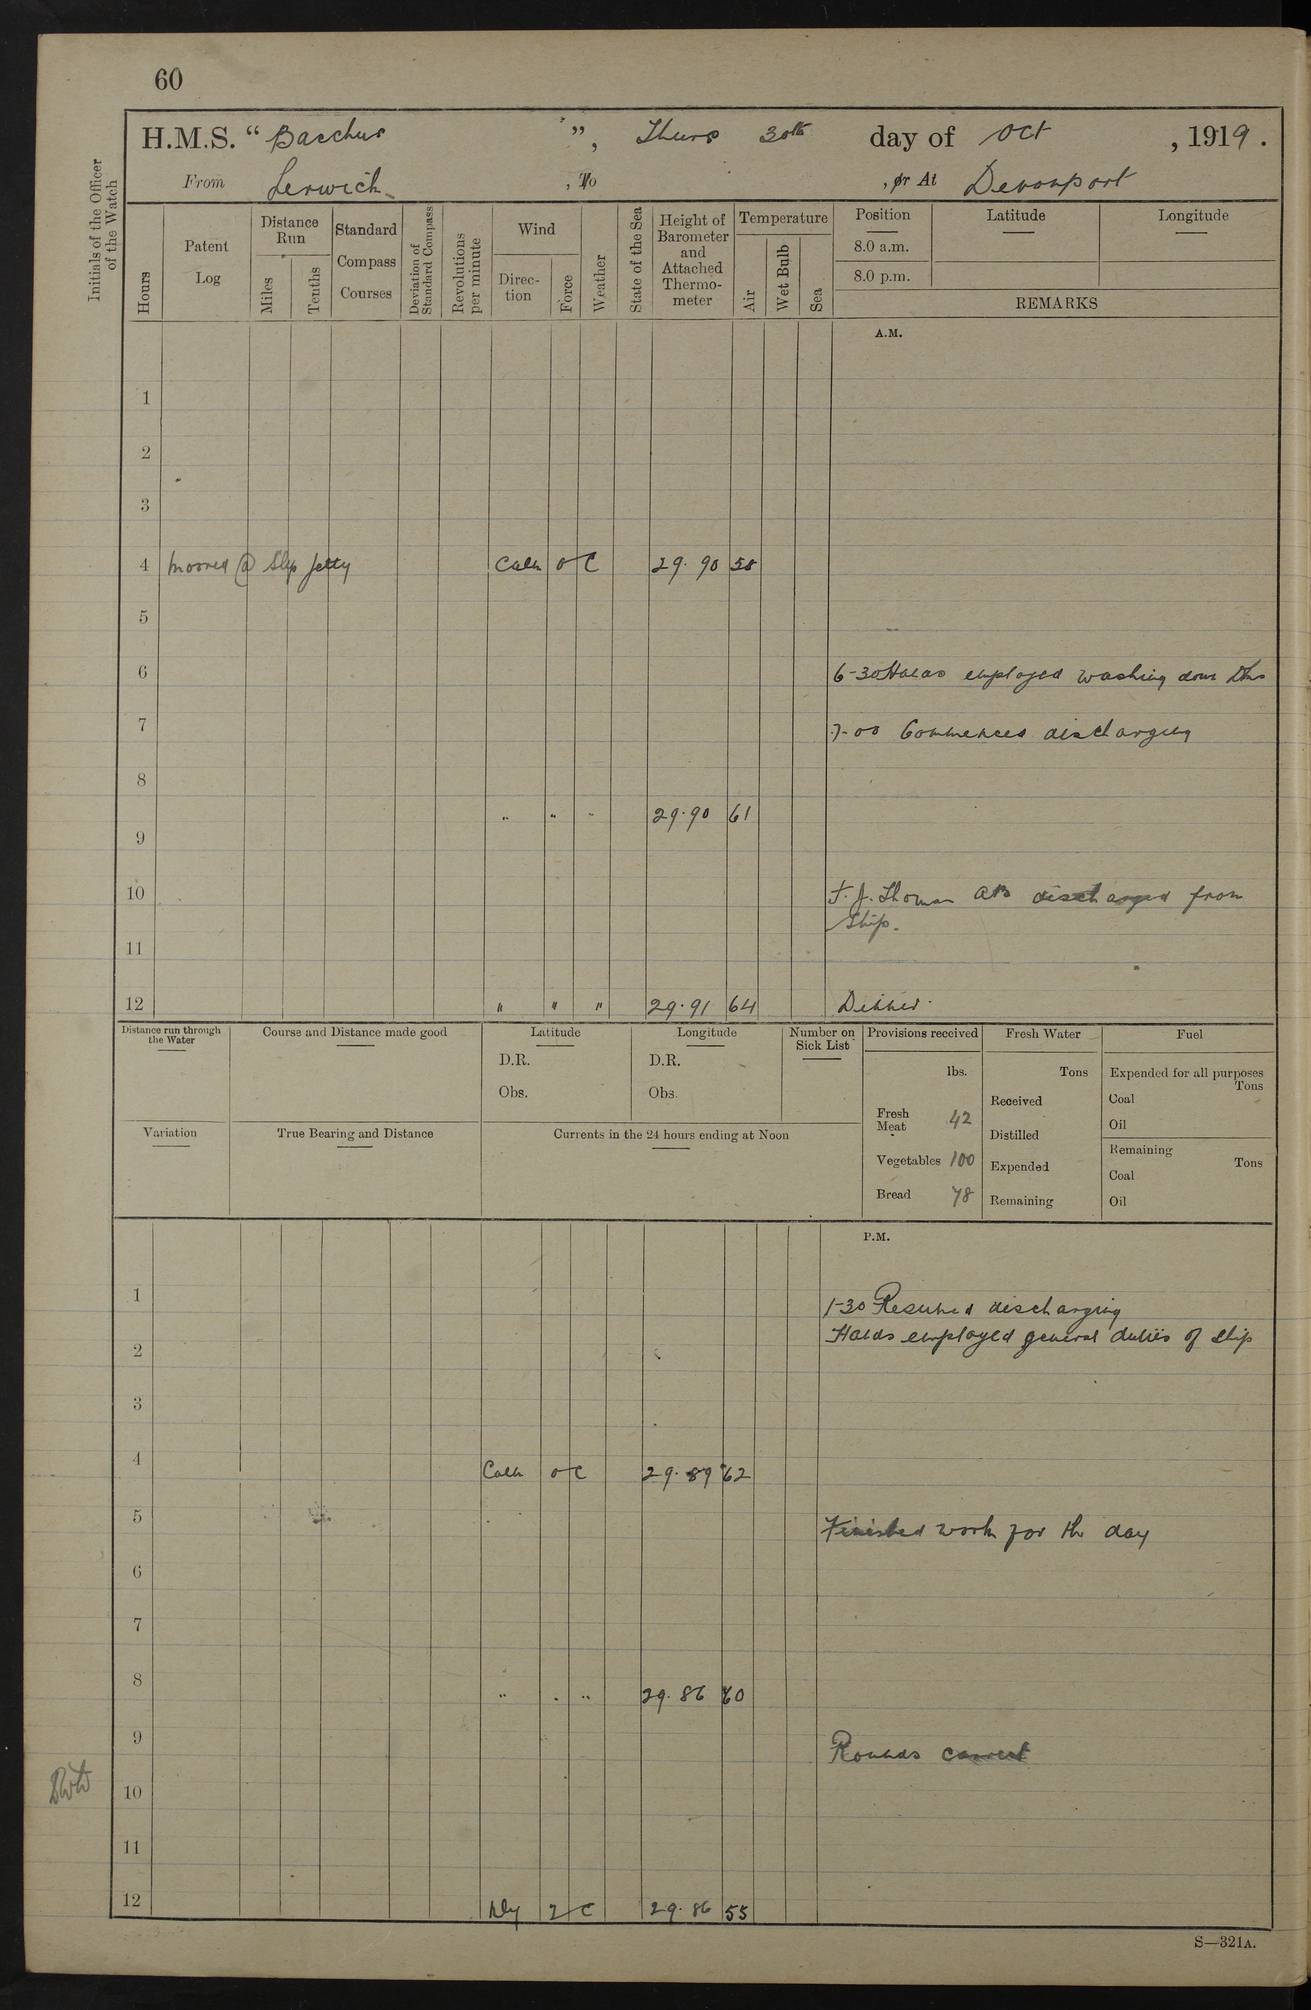 60
H.M.S. "Bacchus", Thurs 30th day of Oct, 1919.
From Lerwick, To , or At Devonport
Initials of the Officer of the Watch
Hours
Patent Log
Distance Run
Miles
Tenths
Standard Compass Courses
Deviation of Standard Compass
Revolutions per minute
Wind
Direction
Force
Weather
State of the Sea
Height of Barometer and Attached Thermometer
Temperature
Air
Wet Bulb
Sea
Position Latitude Longitude
8.0 a.m.
8.0 p.m.
REMARKS
A.M.
1
2
3
4 Moored @ Slip Jetty Calm 0 C 29.90 58
5
6 6-30 Hands employed washing down
7 7-00 Commenced discharging
8 " " " 29.90 61
9
10 F. J. Thomas AB discharged from
Ship.
11
12 " " " 29.91 64 Dinner
Distance run through the Water
Course and Distance made good
Latitude
D.R.
Obs.
Longitude
D.R.
Obs.
Number on Sick List
Provisions received
lbs.
Fresh Meat 42
Vegetables 100
Bread 78
Fresh Water
Tons
Received
Distilled
Expended
Remaining
Fuel
Expended for all purposes
Tons
Coal
Oil
Remaining
Tons
Coal
Oil
Variation
True Bearing and Distance
Currents in the 24 hours ending at Noon
P.M.
1 1-30 Resumed discharging
Hands employed general duties of ship
2
3
4 Calm 0 C 29.89 62
5 Finished work for the day
6
7
8 " " " 29.86 60
9 Rounds correct
10
11
12 2 C 29.86 55
S—321A.